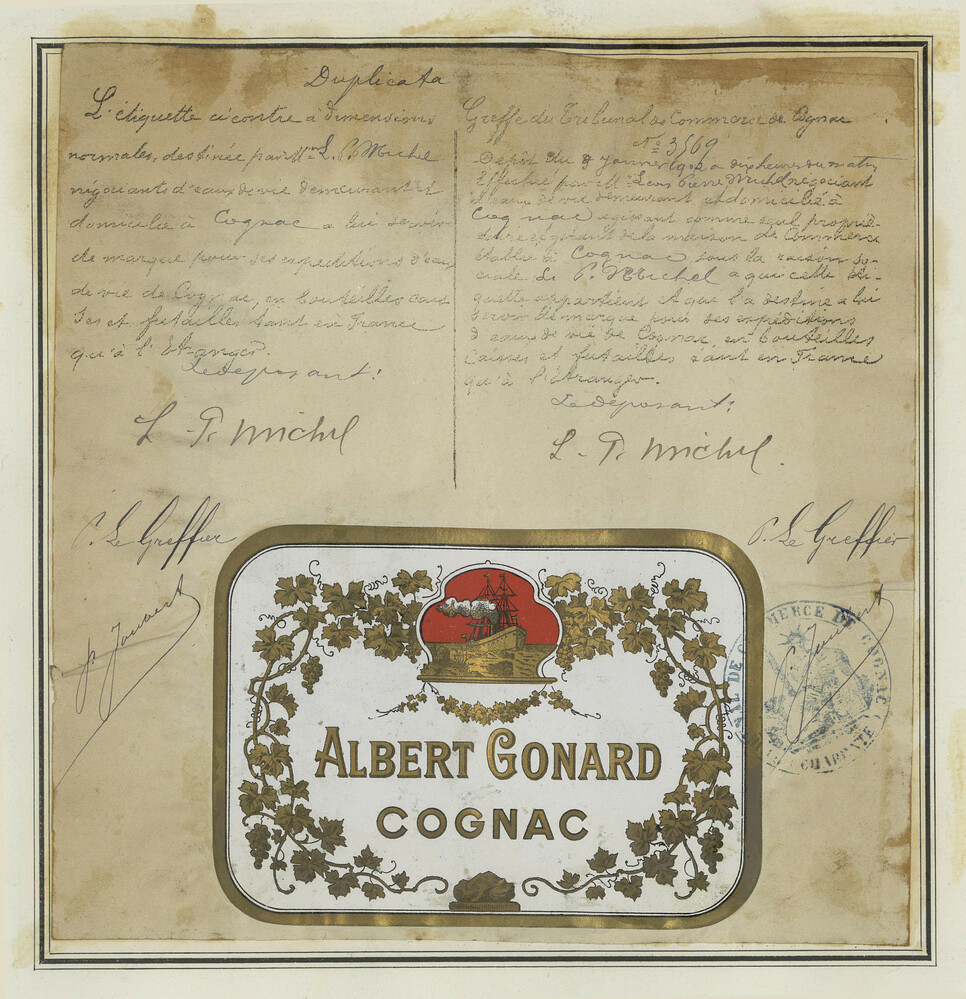 Duplicata
L'étiquette ci contre à dimensions
normales, destinée par Mr L. P. Michel
négociants d'eaux de vie demeurant et
domicilié à Cognac a lui servir
de marque pour ses expéditions d'eau
de vie de Cognac, en bouteilles cais
ses et futailles tant en France
qu'à l'Etranger.
Le déposant:
L. P. Michel
P. Le Greffier
Greffe du Tribunal de Commerce de Cognac
No 3569
Dépôt du 8 Janvier 1902 à dix heures du matin
Effectué par M. Léon Pierre Michel négociant
d'eaux de vie demeurant et domicilié à
Cognac agissant comme seul proprié-
taire gérant de la maison de Commerce
établie à Cognac, sous la raison so-
ciale L. P. Michel a qui cette éti-
quette appartient et que l'a destine a lui
servir de marque pour ses expéditions
d'eaux de vie de Cognac, en bouteilles
Caisses et futailles tant en France
qu'à l'étranger.
Le déposant:
L. P. Michel.
P. Le Greffier
ALBERT GONARD
COGNAC
COMMERCE DE COGNAC
CHARENTE